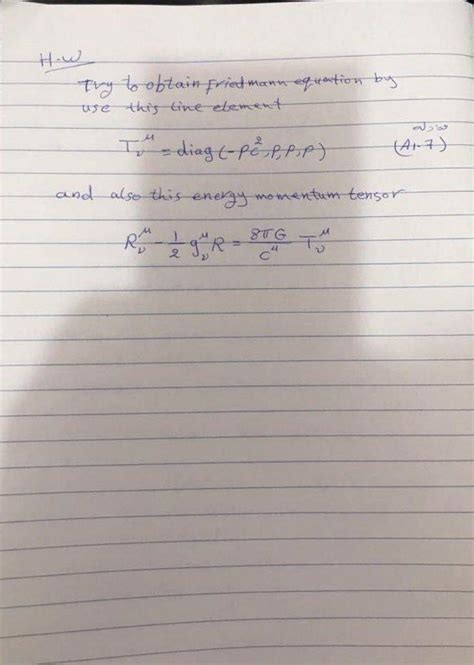 H.W
Try to obtain Friedmann equation by
use this line element
T^μ_ν = diag(-ρc^2, P, P, P) (A1-7)
and also this energy momentum tensor
R^μ_ν - 1/2 g^μ_ν R = 8πG/c^4 T^μ_ν